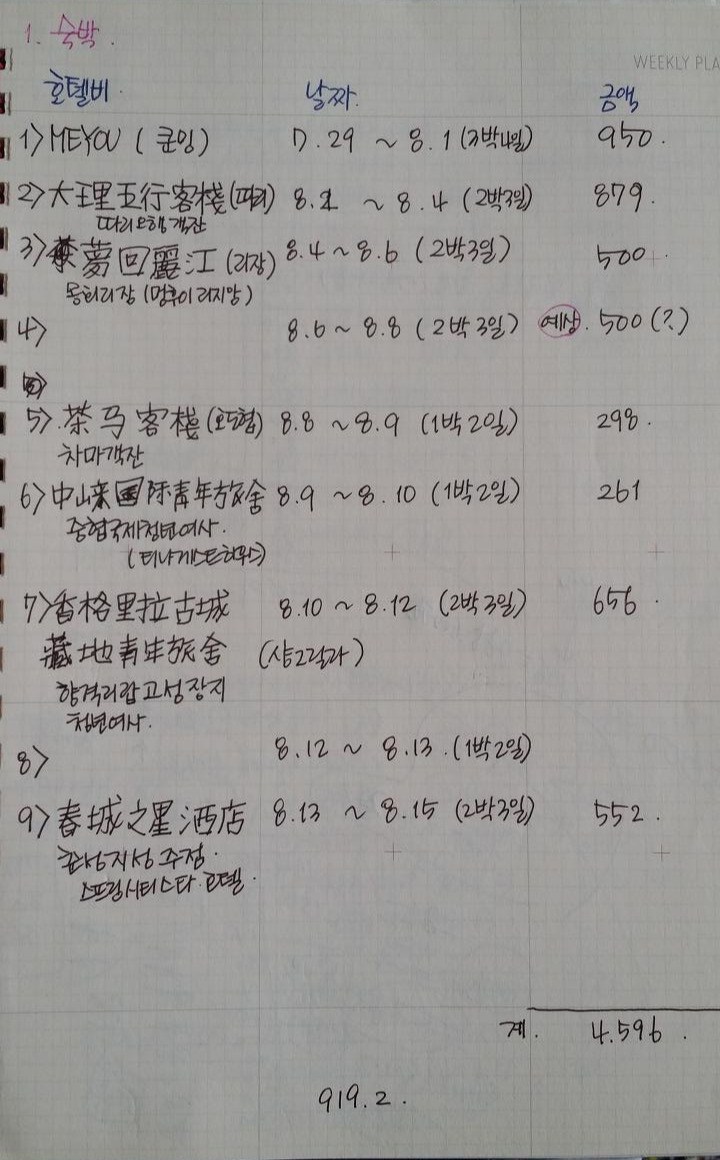 1. 숙박.
WEEKLY PLA
호텔비 날짜. 금액
1> MEYOU (쿤밍) 7.29 ~ 8.1 (3박4일) 950.
2> 大理五行客栈 (따리) 8.2 ~ 8.4 (2박3일) 879.
따리오행객잔
3> 夢回麗江 (리장) 8.4 ~ 8.6 (2박3일) 500
몽회리장 (멍후이리지앙)
4> 8.6 ~ 8.8 (2박3일) 예상. 500(?)
5>. 茶马客栈 (호도협) 8.8 ~ 8.9 (1박2일) 298.
차마객잔
6> 中峽国际青年旅舍 8.9 ~ 8.10 (1박2일) 261
중협국제청년여사.
(티나게스트하우스)
7> 香格里拉古城 8.10 ~ 8.12 (2박3일) 656.
藏地青年旅舍 (샹그릴라)
향격리랍고성장지
청년여사.
8> 8.12 ~ 8.13. (1박2일)
9> 春城之星酒店 8.13 ~ 8.15 (2박3일) 552.
춘성지성주점.
스프링시티스타호텔.
계. 4.596.
919.2.